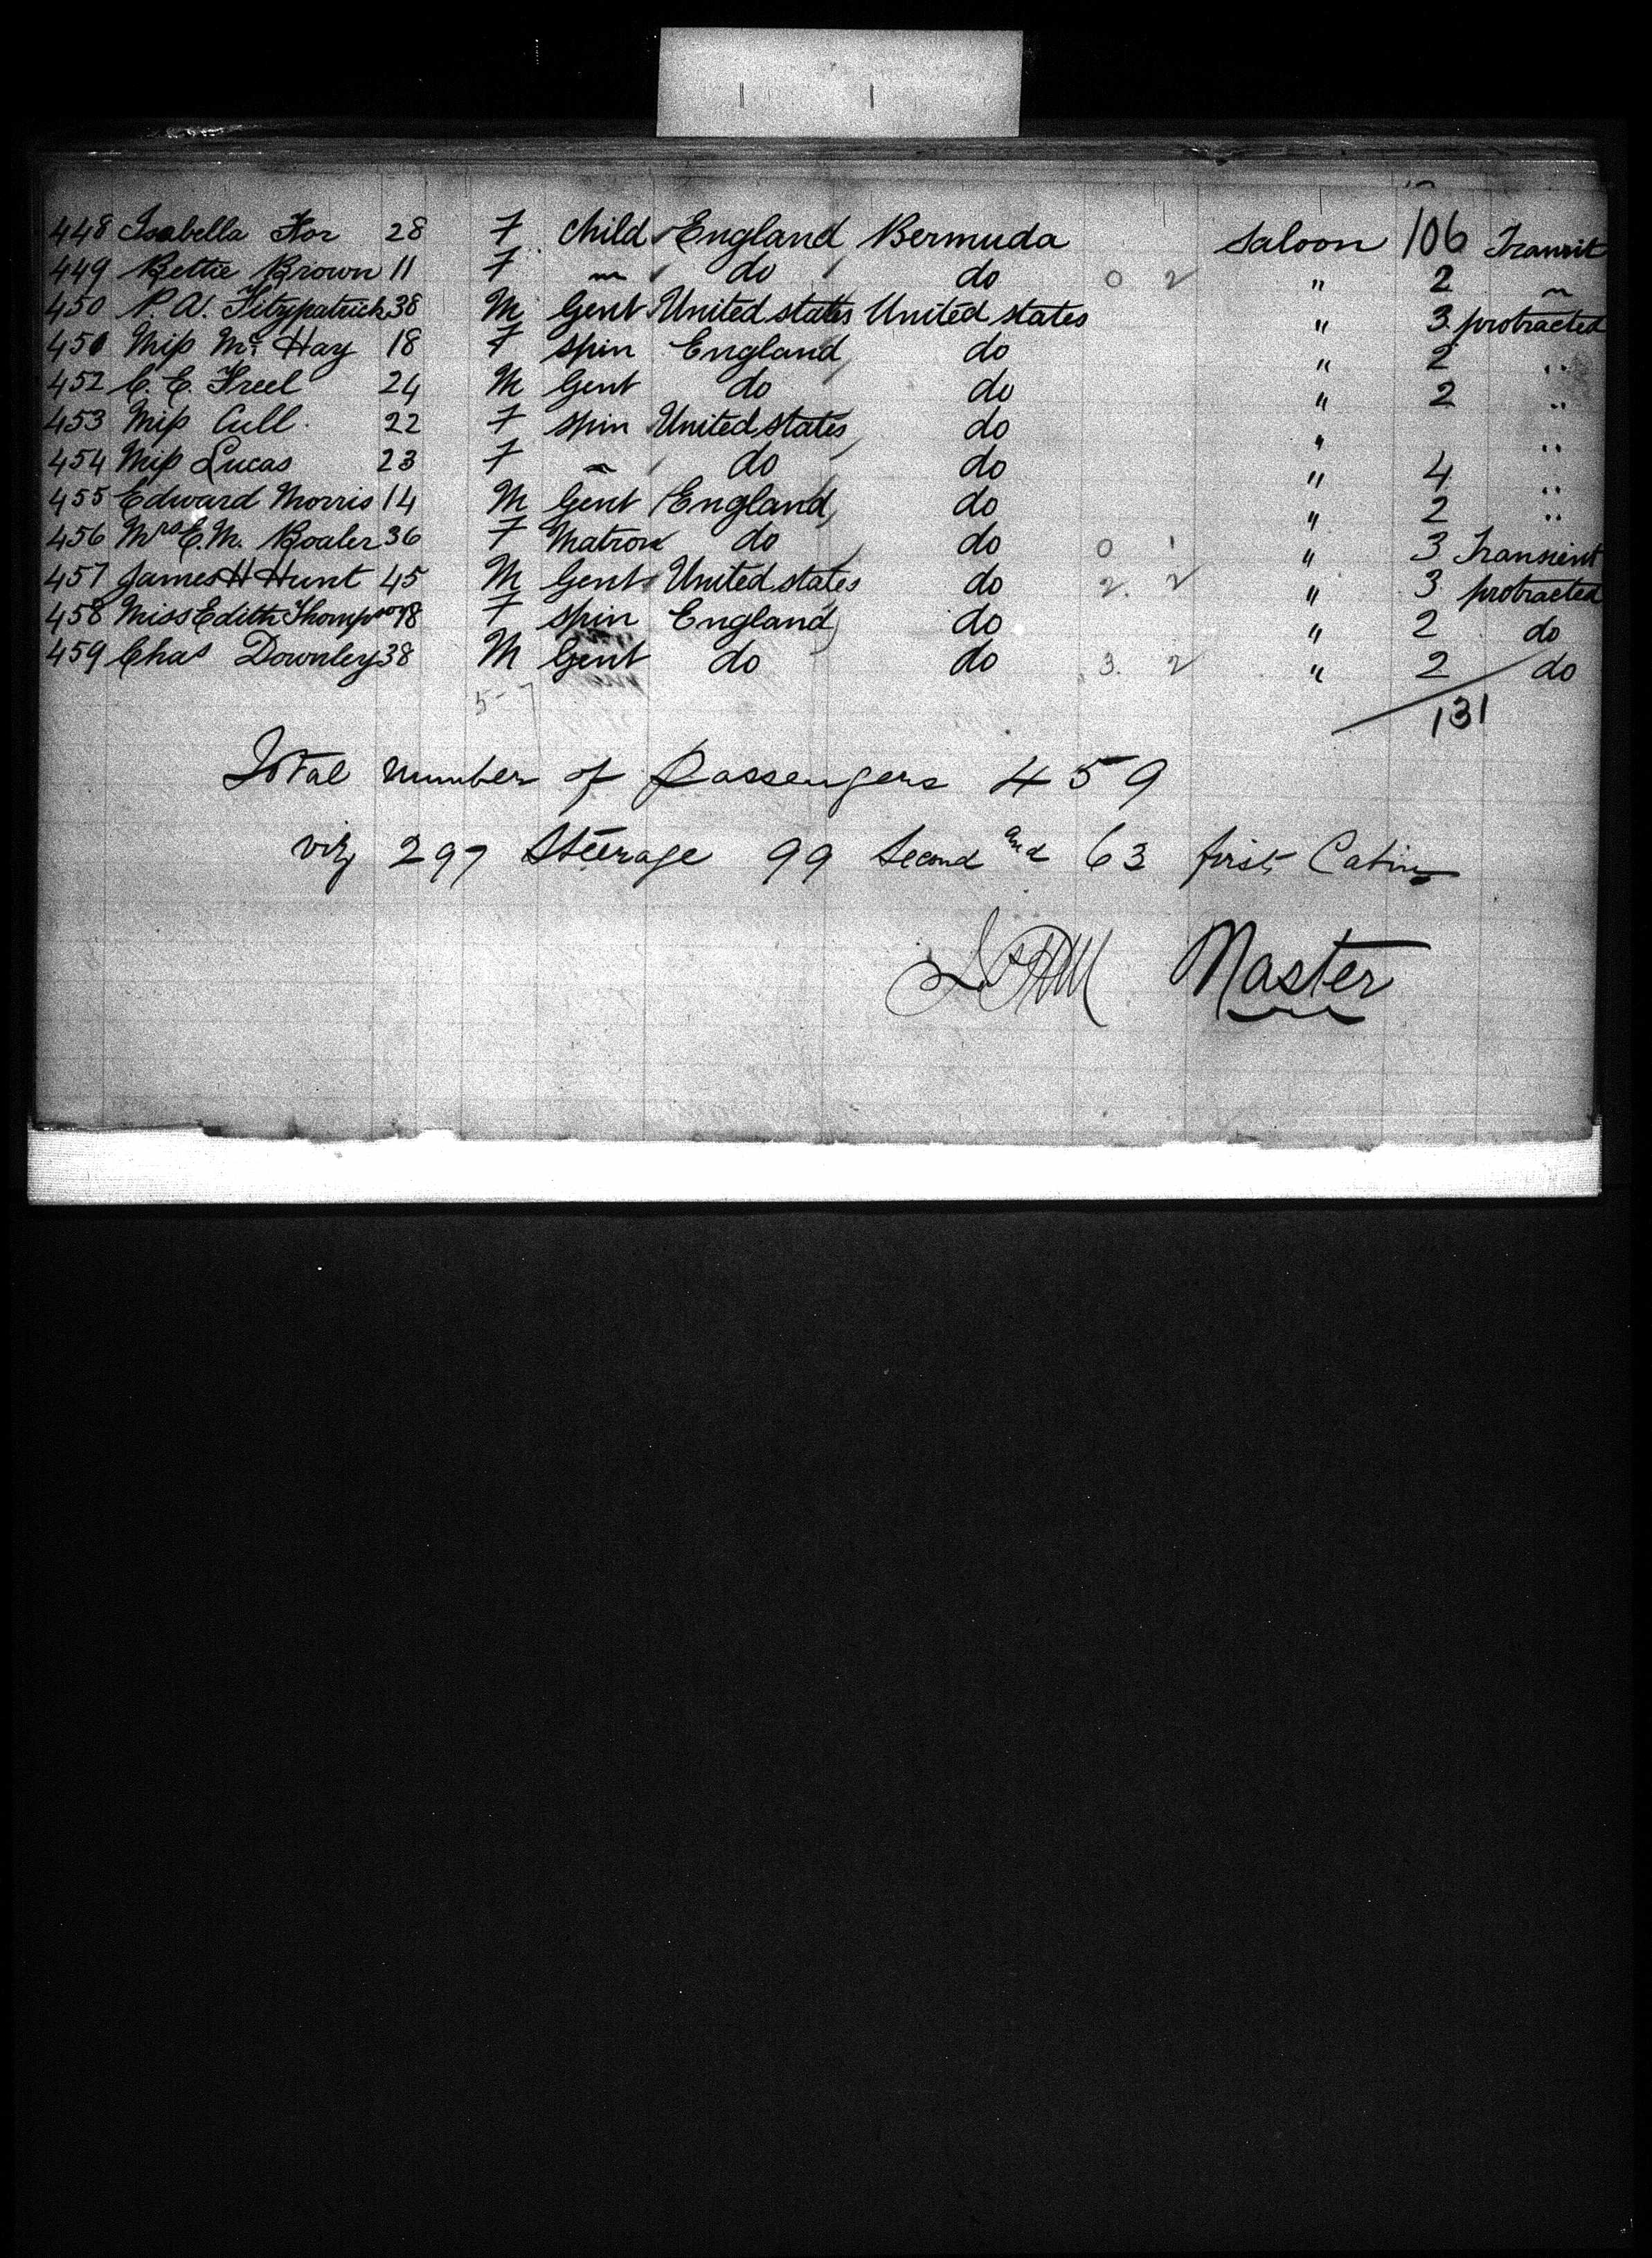 448 Isabella Fox 28 F child England Bermuda Saloon 106 Transit
449 Bettie Brown 11 F " do do 0 2 " 2 "
450 P. W. Fitzpatrick 38 M Gent United states United states " 3 protracted
450 Miss Mc Hay 18 F spin England do " 2 "
452 C. E. Freel 24 M Gent do do " 2 "
453 Miss Cull. 22 F spin United states do " "
454 Miss Lucas 23 F " do do " 4 "
455 Edward Morris 14 M Gent England do " 2 "
456 Mrs E. M. Boaler 36 F Matron do do 0 1 " 3 Transient
457 James H Hunt 45 M Gent United states do 2. 2 " 3 protracted
458 Miss Edith Thompson 18 F spin England do " 2 do
459 Chas Downley 38 M Gent do do 3. 2 " 2 do
5-7 131
Total number of Passengers 459
viz 297 Steerage 99 Second and 63 first Cabin
Master